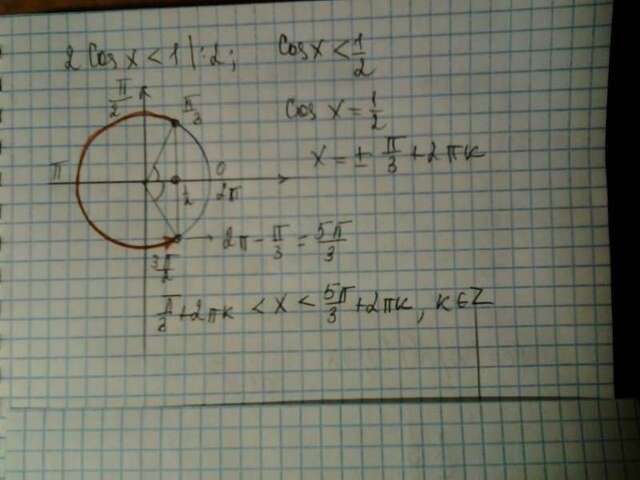 2 Cos x < 1 |:2; Cos x < 1/2
Cos x = 1/2
x = ± π/3 + 2πk
π/2
π/3
π
0
2π
1/2
2π - π/3 = 5π/3
3π/2
π/3 + 2πk < x < 5π/3 + 2πk, k∈Z